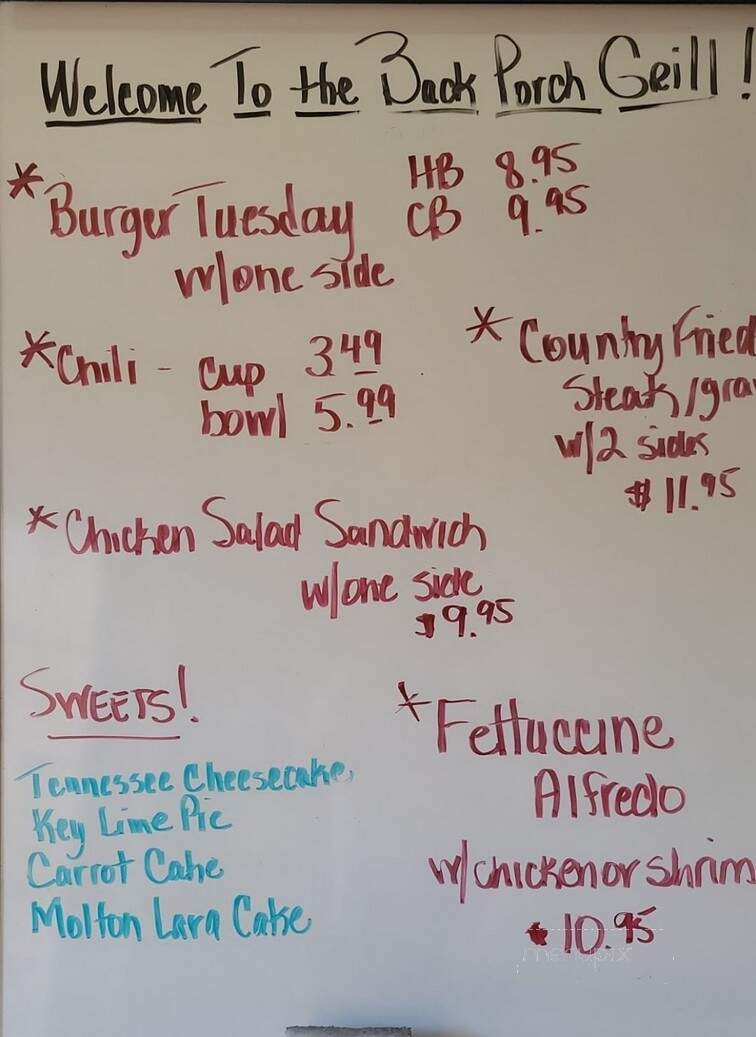 Welcome To the Back Porch Grill!
* Burger Tuesday HB 8.95
CB 9.95
w/one side
* Chili - cup 3.49
bowl 5.99
* Country Fried
Steak/gra
w/2 sides
$11.95
* Chicken Salad Sandwich
w/one side
$9.95
SWEETS!
Tennessee Cheesecake
Key Lime Pie
Carrot Cake
Molton Lava Cake
* Fettuccine
Alfredo
w/chicken or shrim
$10.95
menupix